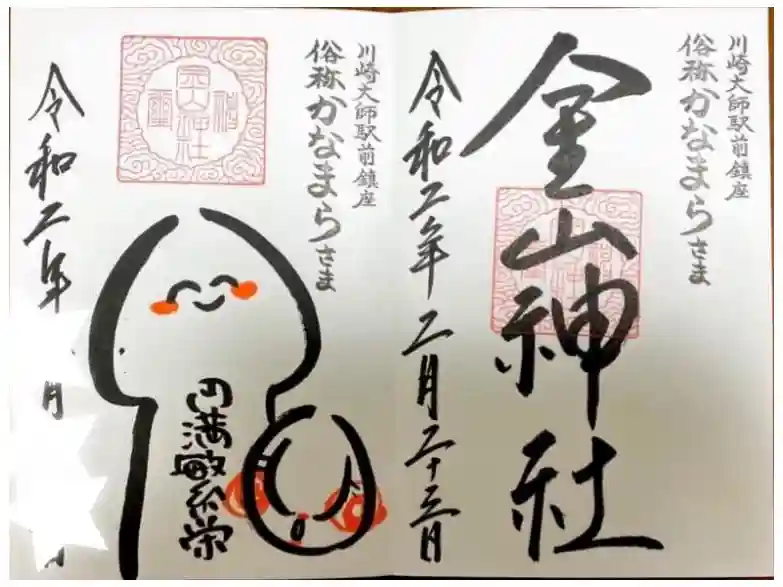 川崎大師駅前鎮座
俗称かなまらさま
金山神社
令和二年二月二十三日
川崎大師駅前鎮座
俗称かなまらさま
金山神社
円満敏系栄
令和二年
月